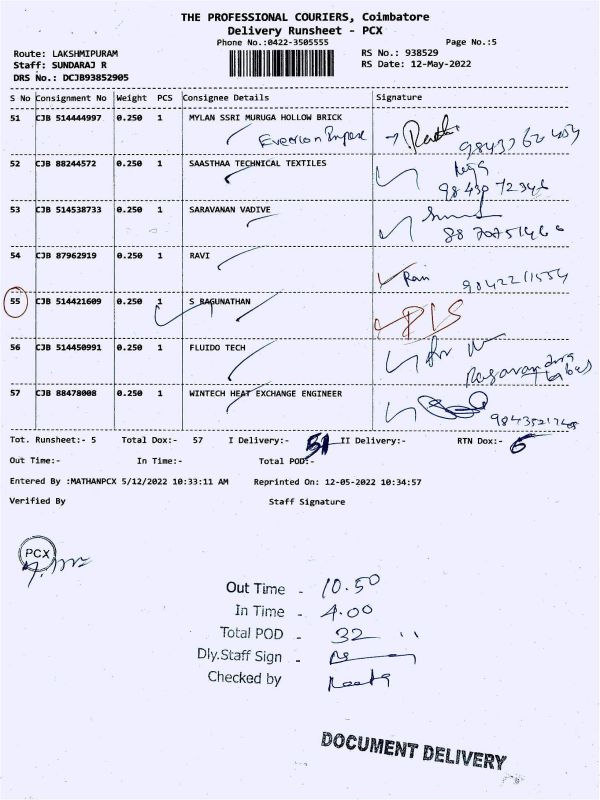 THE PROFESSIONAL COURIERS, Coimbatore
Delivery Runsheet - PCX
Phone No.:0422-3505555 Page No.:5
Route: LAKSHMIPURAM RS No.: 938529
Staff: SUNDARAJ R RS Date: 12-May-2022
DRS No.: DCJB93852905
S No Consignment No Weight PCS Consignee Details Signature
51 CJB 514444997 0.250 1 MYLAN SSRI MURUGA HOLLOW BRICK
52 CJB 88244572 0.250 1 SAASTHAA TECHNICAL TEXTILES
53 CJB 514538733 0.250 1 SARAVANAN VADIVE
54 CJB 87962919 0.250 1 RAVI
Ravi
55 CJB 514421609 0.250 1 S RAGUNATHAN
56 CJB 514450991 0.250 1 FLUIDO TECH
57 CJB 88478008 0.250 1 WINTECH HEAT EXCHANGE ENGINEER
Tot. Runsheet:- 5 Total Dox:- 57 I Delivery:- 51 II Delivery:- RTN Dox:- 6
Out Time:- In Time:- Total POD:-
Entered By :MATHANPCX 5/12/2022 10:33:11 AM Reprinted On: 12-05-2022 10:34:57
Verified By Staff Signature
PCX
Out Time - 10.50
In Time - 4.00
Total POD - 32
Dly.Staff Sign -
Checked by
DOCUMENT DELIVERY